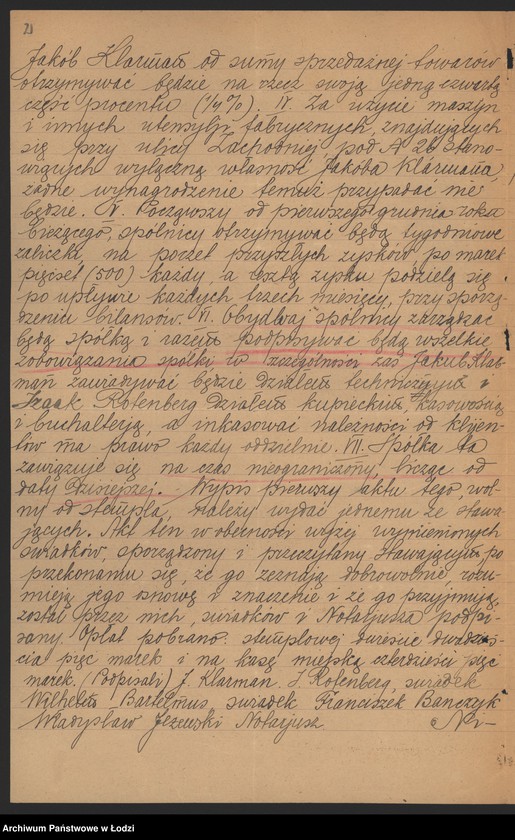 21
Jakób Klarman od sumy sprzedażnej towarów
otrzymywać będzie na rzecz swoją jedną czwartą
część procentu (1/4%). IV. Za użycie maszyn
i innych utensylji fabrycznych, znajdujących
się przy ulicy Zachodniej pod № 26 stano-
wiących wyłączną własność Jakóba Klarmana,
żadne wynagrodzenie temuż przypadać nie
będzie. V. Począwszy od pierwszego grudnia roku
bieżącego, spólnicy otrzymywać będą tygodniowe
zaliczki, na poczet przyszłych zysków po marek
pięćset (500) każdy, a resztą zysku podzielą się
po upływie każdych trzech miesięcy, przy sporzą-
dzeniu bilansów. VI. Obydwaj spólnicy zarządzać
będą spółką i razem podpisywać będą wszelkie
zobowiązania spółki tu szczególności zaś Jakub Klar-
man zawiadywać będzie działem technicznym i
Izaak Rotenberg działem kupieckim, kasowością
i buchalterją, a inkasować należności od klijen-
tów ma prawo każdy oddzielnie. VII. Spółka ta
zawiązuje się na czas nieograniczony, licząc od
daty dzisiejszej. Wypis pierwszy aktu tego, wol-
ny od stempla, należy wydać jednemu ze stawa-
jących. Akt ten w obecności wyżej wymienionych
świadków, sporządzony i przeczytany stawającym, po
przekonaniu się, że go zeznają dobrowolnie, rozu-
mieją jego osnowę i znaczenie i że go przyjmują,
został przez nich, świadków i Notarjusza podpi-
sany. Opłat pobrano: stemplowej dwieście dwadzieś-
cia pięć marek i na kasę miejską czterdzieści pięć
marek. (Podpisali) J. Klarman. I. Rotenberg, świadek
Wilhelm Bartelmus, świadek Franciszek Bańczyk
Władysław Jeżewski Notarjusz.
Archiwum Państwowe w Łodzi